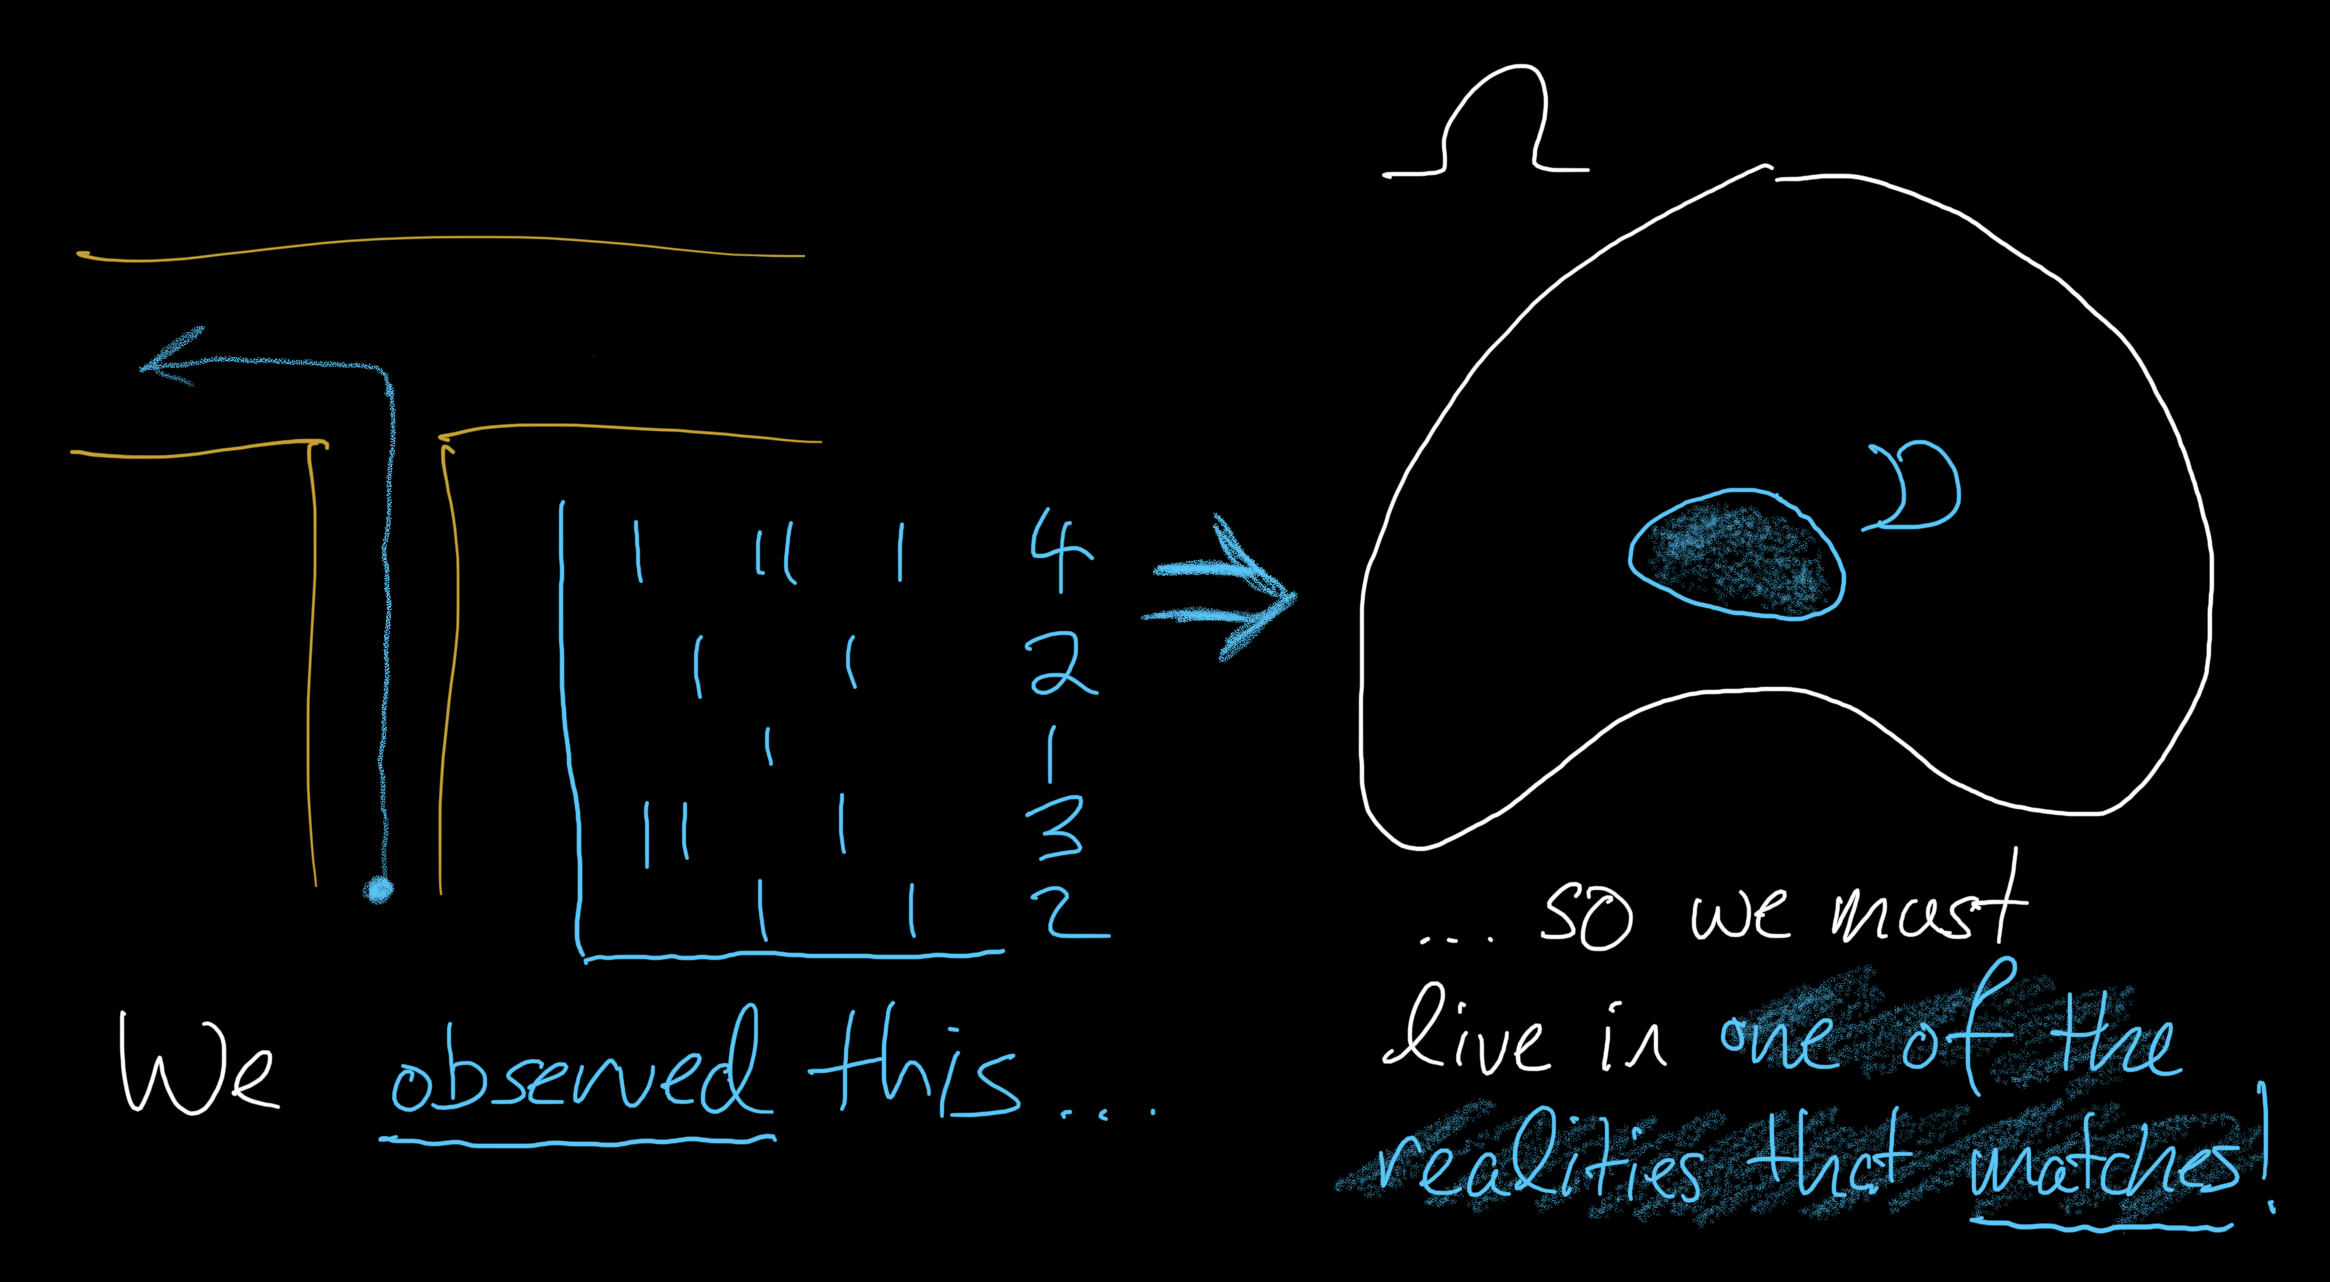 Ω
D
4
2
1
3
2
We observed this...
...so we must
live in one of the
realities that matches!